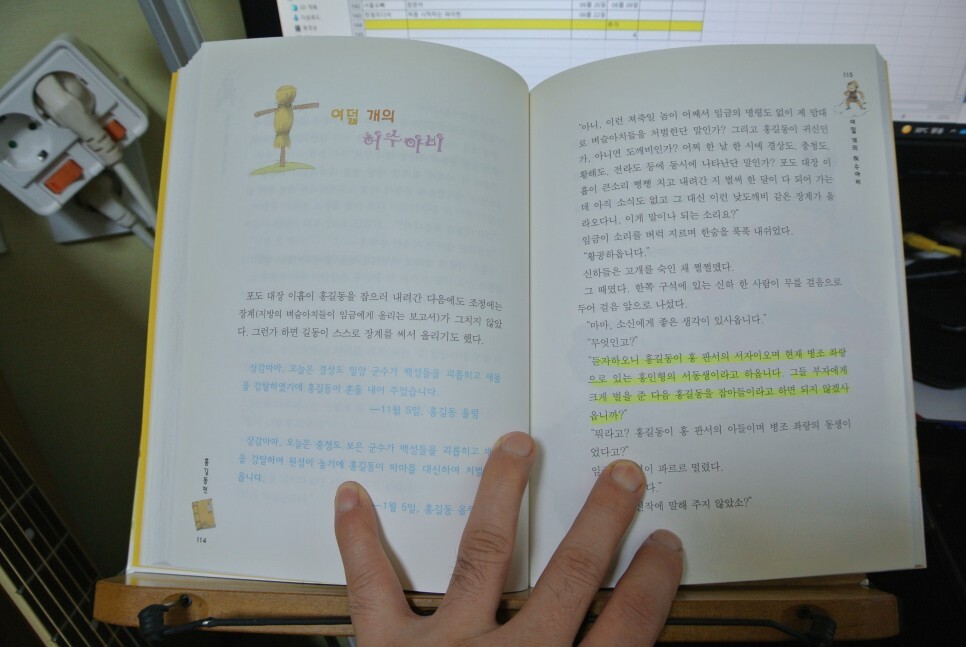 여덟 개의
허수아비
포도 대장 이흡이 홍길동을 잡으러 내려간 다음에도 조정에는
장계(지방의 벼슬아치들이 임금에게 올리는 보고서)가 그치지 않았
다. 그런가 하면 길동이 스스로 장계를 써서 올리기도 했다.
상감마마, 오늘은 경상도 밀양 군수가 백성들을 괴롭히고 재물
을 강탈하였기에 홍길동이 혼을 내어 주었습니다.
—11월 5일, 홍길동 올림
상감마마, 오늘은 충청도 보은 군수가 백성들을 괴롭히고
을 강탈하여 원성이 높기에 홍길동이 마마를 대신하여 처벌
옵니다.
—1월 5일, 홍길동 올림
홍길동전
114
115
여덟 개의 허수아비
"아니, 이런 쳐죽일 놈이 어째서 임금의 명령도 없이 제 맘대
로 벼슬아치들을 처벌한단 말인가? 그리고 홍길동이 귀신인
가, 아니면 도깨비인가? 어찌 한 날 한 시에 경상도, 충청도,
황해도, 전라도 등에 동시에 나타난단 말인가? 포도 대장 이
흡이 큰소리 뻥뻥 치고 내려간 지 벌써 한 달이 다 되어 가는
데 아직 소식도 없고 그 대신 이런 낮도깨비 같은 장계가 올
라오다니, 이게 말이나 되는 소리요?"
임금이 소리를 버럭 지르며 한숨을 푹푹 내쉬었다.
"황공하옵니다."
신하들은 고개를 숙인 채 쩔쩔맸다.
그 때였다. 한쪽 구석에 있는 신하 한 사람이 무릎 걸음으로
두어 걸음 앞으로 나섰다.
"마마, 소신에게 좋은 생각이 있사옵니다."
"무엇인고?"
"듣자하오니 홍길동이 홍 판서의 서자이오며 현재 병조 좌랑
으로 있는 홍인형의 서동생이라고 하옵니다. 그들 부자에게
크게 벌을 준 다음 홍길동을 잡아들이라고 하면 되지 않겠사
옵니까?"
"뭐라고? 홍길동이 홍 판서의 아들이며 병조 좌랑의 동생이
었다고?"
이 파르르 떨렸다.
다."
진작에 말해 주지 않았소?"